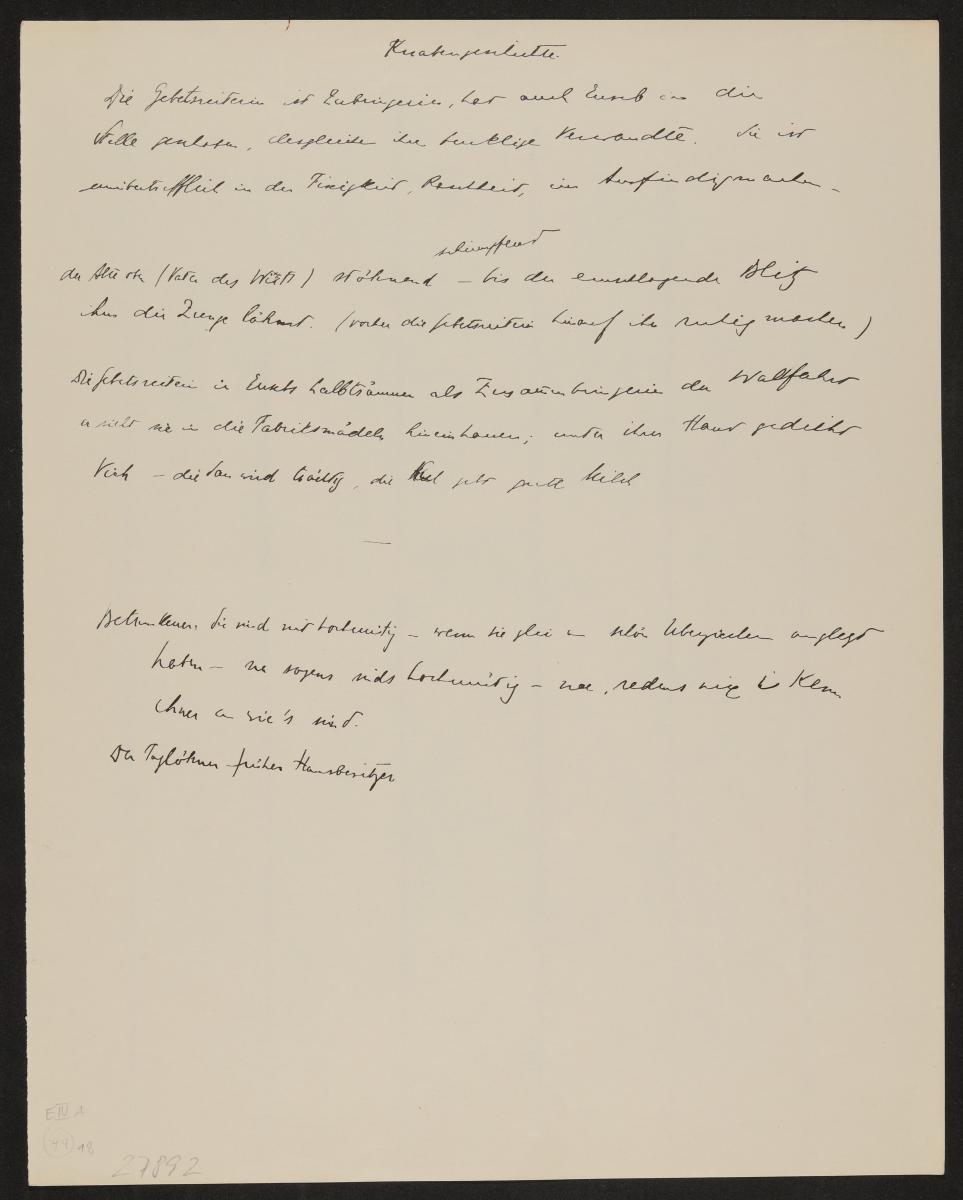 Knabengeschichte.
Die Gebetsreiterin ist Zubringerin, hat auch Euseb an die
Stelle gewiesen, desgleichen ihre bucklige Verwandte. Sie ist
unübertrefflich in der Findigkeit, Raschheit, im Ausfindigmachen –
schimpfend
der Alte oben (Vater des Wirts) stöhnend – bis der einschlagende Blitz
ihm die Zunge lähmt. (vorher die Gebetsreiterin hinauf ihn ruhig machen)
Die Gebetsreiterin in Eusebs halbträumen als Zusammenbringerin der Wallfahrt
er sieht sie in die Fabriksmädeln hineinhauen; unter ihrer Hand gedeiht
Vieh – die Sau wird trächtig, die Kuh gibt gute Milch
—
Betrunkener. Sie sind net hochmütig – wenn Sie glei an schön Überzieher anglegt
haben – na sagens sinds hochmütig – na, redens nix i kenn
Ihner an wie's sind.
Der Taglöhner früher Hausbesitzer
E IV A
44 18
27892